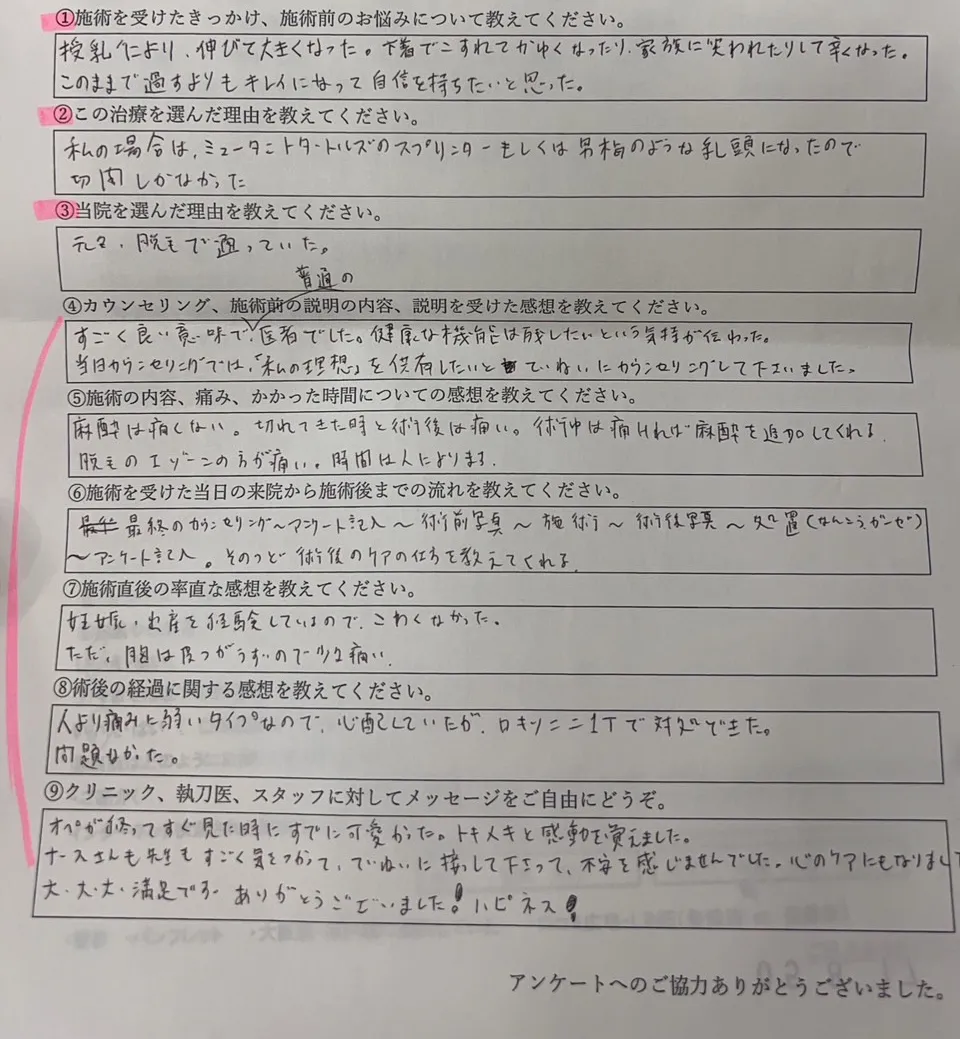 ①施術を受けたきっかけ、施術前のお悩みについて教えてください。
授乳により、伸びて大きくなった。下着でこすれてかゆくなったり、家族に笑われたりして辛くなった。
このままで過すよりもキレイになって自信を持ちたいと思った。
②この治療を選んだ理由を教えてください。
私の場合は、ミュータントタートルズのスプリンターもしくは男梅のような乳頭になったので
切開しかなかった
③当院を選んだ理由を教えてください。
元々、脱毛で通っていた。
普通の
④カウンセリング、施術前の説明の内容、説明を受けた感想を教えてください。
すごく良い意味で医者でした。健康な機能は残したいという気持が伝わった。
当日カウンセリングでは、「私の理想」を供有したいとていねいにカウンセリングして下さいました。
⑤施術の内容、痛み、かかった時間についての感想を教えてください。
麻酔は痛くない。切れてきた時と術後は痛い。術中は痛ければ麻酔を追加してくれる。
脱毛のIゾーンの方が痛い。時間は人によります。
⑥施術を受けた当日の来院から施術後までの流れを教えてください。
最終のカウンセリング〜アンケート記入〜術前写真〜施術〜術後写真〜処置(なんこう、ガーゼ)
〜アンケート記入。そのつど術後のケアの仕方を教えてくれる。
⑦施術直後の率直な感想を教えてください。
妊娠・出産を経験しているので、こわくなかった。
ただ、胸は皮ふがうすいので少々痛い。
⑧術後の経過に関する感想を教えてください。
人より痛みに弱いタイプなので、心配していたが、ロキソニン1Tで対処できた。
問題なかった。
⑨クリニック、執刀医、スタッフに対してメッセージをご自由にどうぞ。
オペが終ってすぐ見た時にすでに可愛かった。トキメキと感動を覚えました。
ナースさんも先生もすごく気をつかって、ていねいに接して下さって、不安を感じませんでした。心のケアにもなりまして
大・大・大・満足です。ありがとうございました!ハピネス!
アンケートへのご協力ありがとうございました。